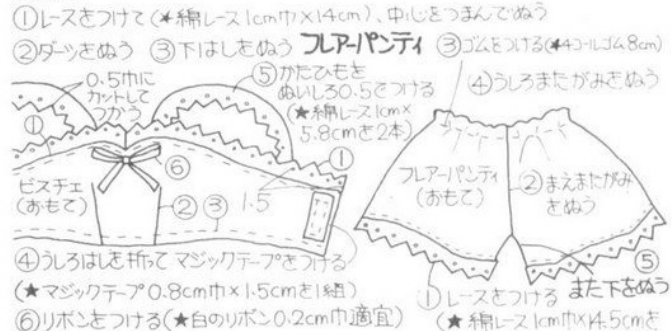 ①レースをつけて(★綿レース1cm巾×14cm)、中心をつまんでぬう
②ダーツをぬう ③下はしをぬう
フレアーパンティ
③ゴムをつける(★4コールゴム8cm)
0.5巾に
カットして
つかう
⑤かたひもを
ぬいしろ0.5でつける
(★綿レース1cm×
5.8cmを2本)
④うしろまたがみをぬう
①
①
⑥
ビスチェ
(おもて)
②
③
1.5
フレアーパンティ
(おもて)
②まえまたがみ
をぬう
④うしろはしを折ってマジックテープをつける
(★マジックテープ0.8cm巾×1.5cmを1組)
⑥リボンをつける(★白のリボン0.2cm巾適宜)
⑤
また下をぬう
①レースをつける
(★綿レース1cm巾×14.5cmを